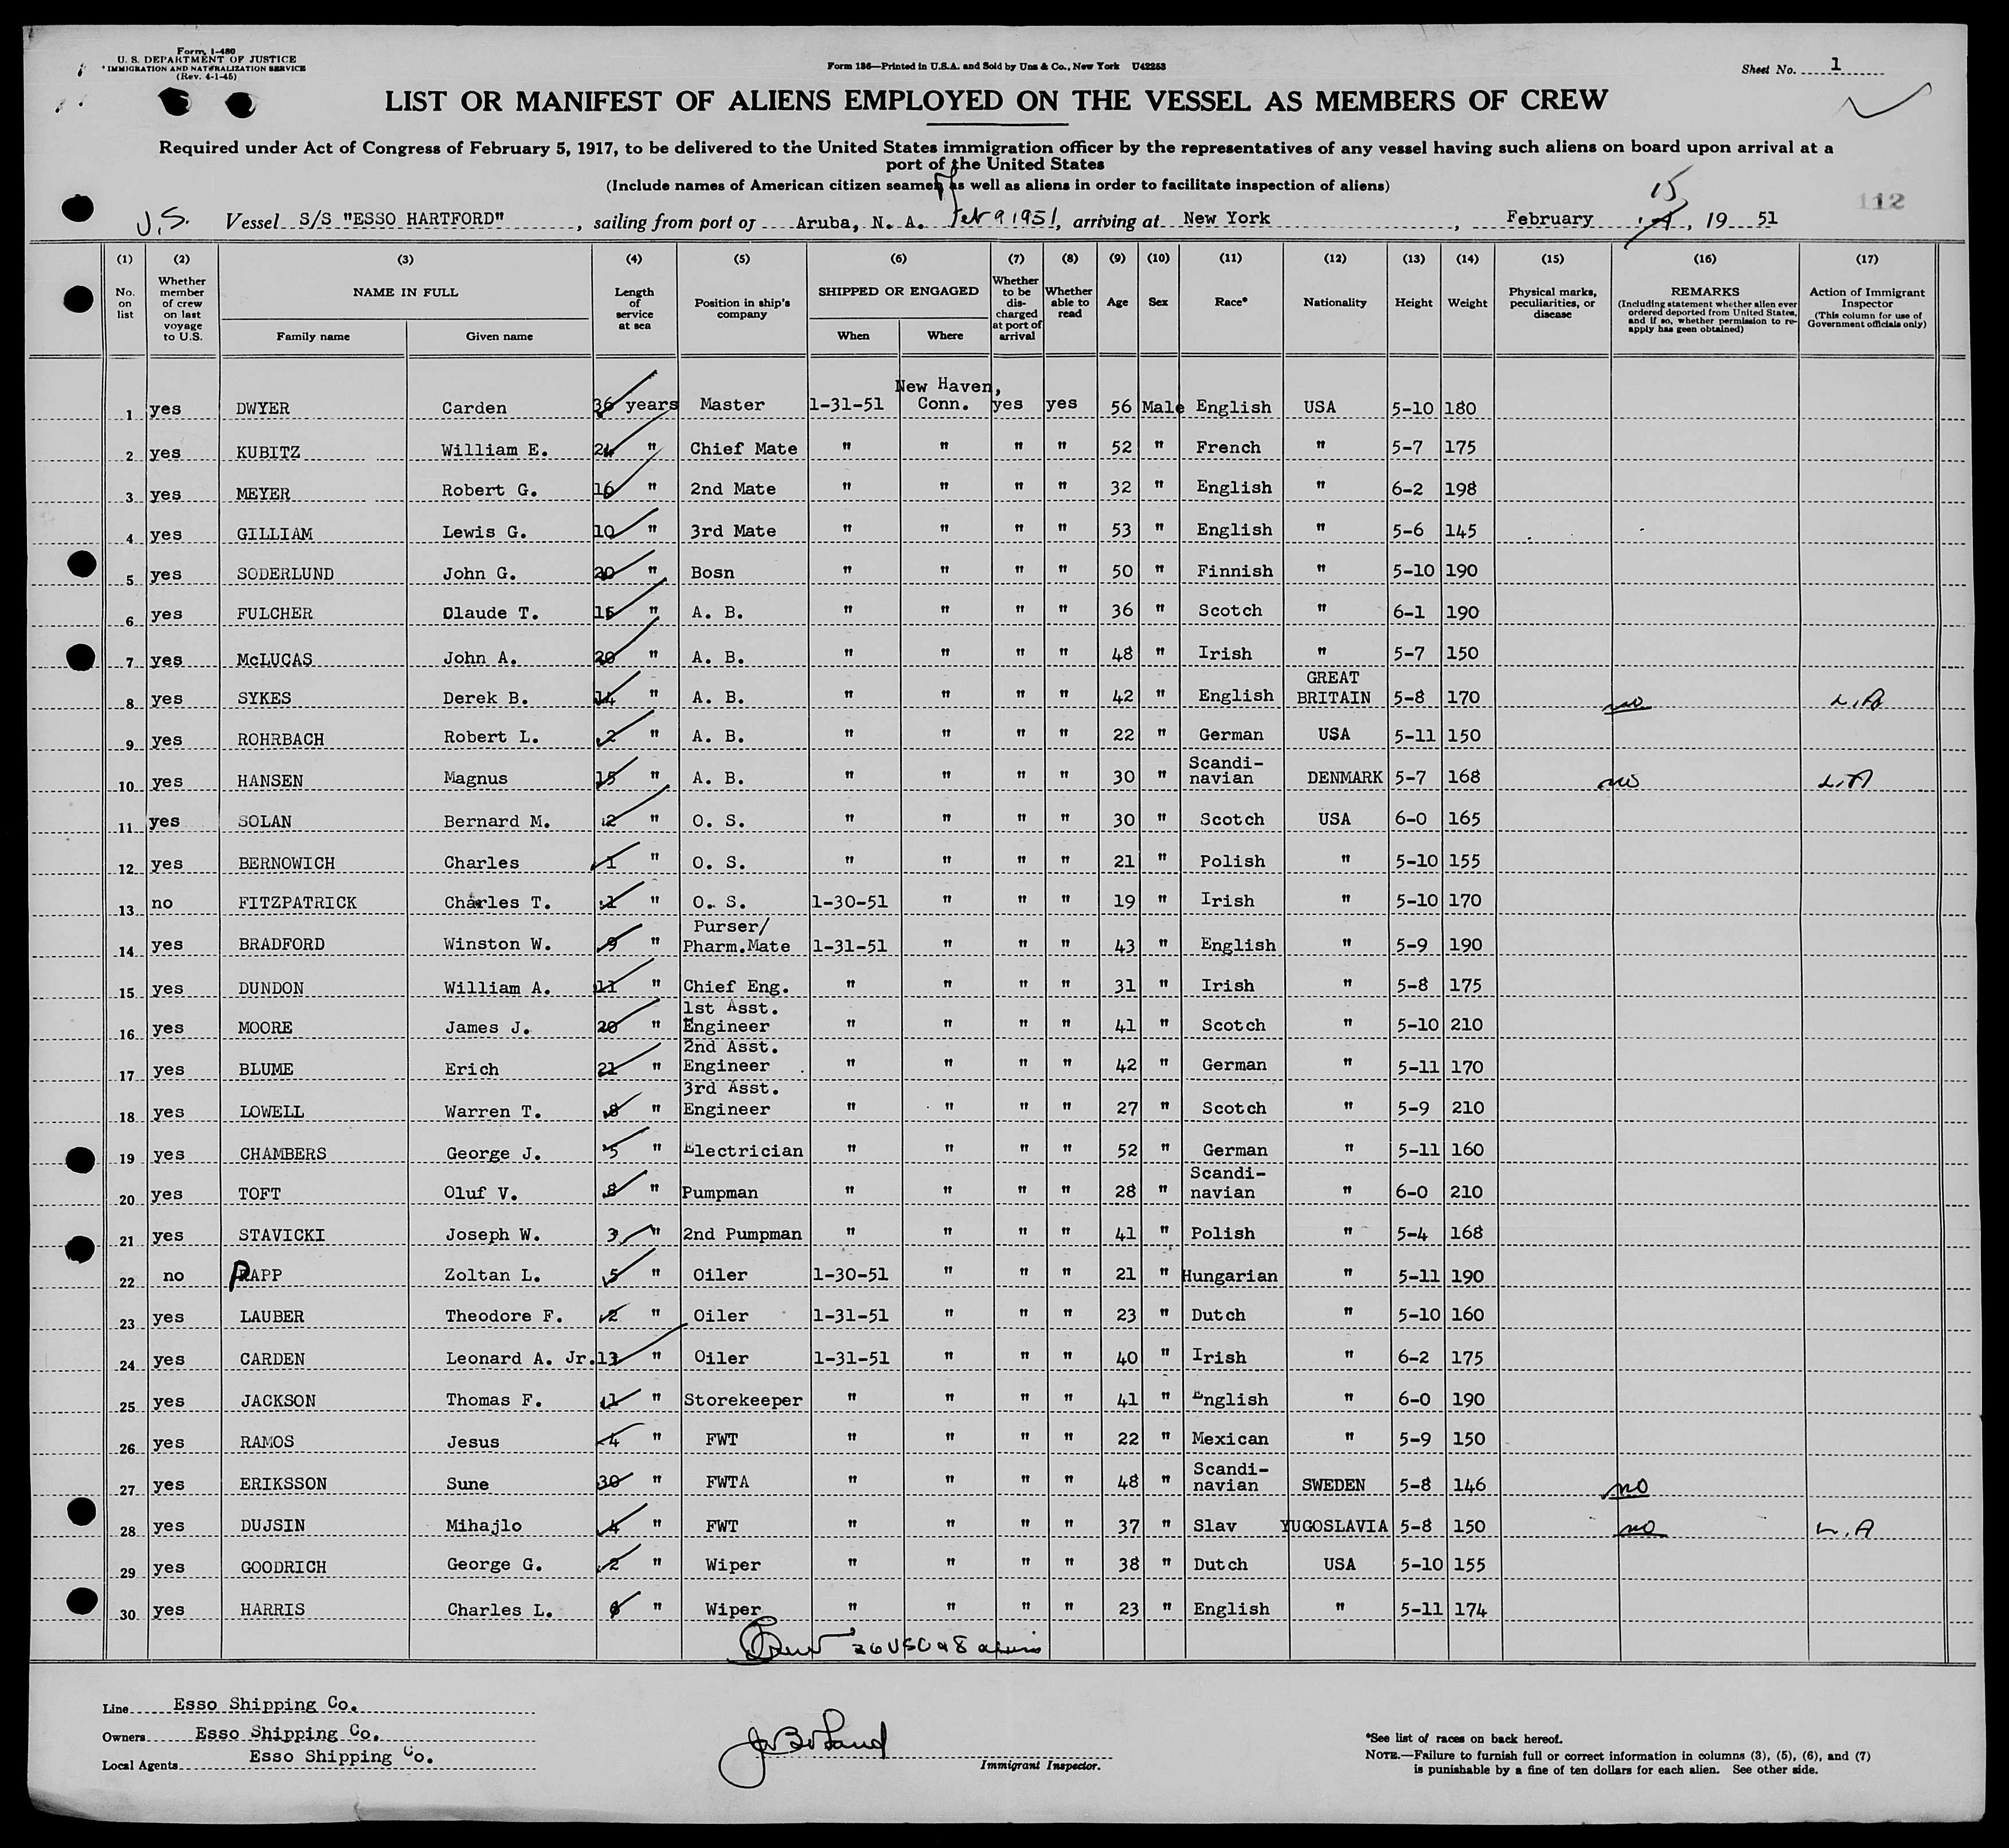 Form I-480
U. S. DEPARTMENT OF JUSTICE
IMMIGRATION AND NATURALIZATION SERVICE
(Rev. 4-1-45)
Form 136—Printed in U.S.A. and Sold by Unz & Co., New York U42253
Sheet No. 1
LIST OR MANIFEST OF ALIENS EMPLOYED ON THE VESSEL AS MEMBERS OF CREW
Required under Act of Congress of February 5, 1917, to be delivered to the United States immigration officer by the representatives of any vessel having such aliens on board upon arrival at a
port of the United States
(Include names of American citizen seamen as well as aliens in order to facilitate inspection of aliens)
112
U.S. Vessel S/S "ESSO HARTFORD", sailing from port of Aruba, N. A. Feb 9 1951, arriving at New York, February 15, 19 51
(1) (2) (3) (4) (5) (6) (7) (8) (9) (10) (11) (12) (13) (14) (15) (16) (17)
No. on list
Whether member of crew on last voyage to U.S.
NAME IN FULL
Family name Given name
Length of service at sea
Position in ship's company
SHIPPED OR ENGAGED
When Where
Whether to be discharged at port of arrival
Whether able to read
Age Sex Race* Nationality Height Weight
Physical marks, peculiarities, or disease
REMARKS
(Including statement whether alien ever ordered deported from United States, and if so, whether permission to re-apply has geen obtained)
Action of Immigrant Inspector
(This column for use of Government officials only)
1 yes DWYER Carden 36 years Master 1-31-51 New Haven, Conn. yes yes 56 Male English USA 5-10 180
2 yes KUBITZ William E. 24 " Chief Mate " " " " 52 " French " 5-7 175
3 yes MEYER Robert G. 16 " 2nd Mate " " " " 32 " English " 6-2 198
4 yes GILLIAM Lewis G. 10 " 3rd Mate " " " " 53 " English " 5-6 145
5 yes SODERLUND John G. 20 " Bosn " " " " 50 " Finnish " 5-10 190
6 yes FULCHER Claude T. 15 " A. B. " " " " 36 " Scotch " 6-1 190
7 yes McLUCAS John A. 20 " A. B. " " " " 48 " Irish " 5-7 150
8 yes SYKES Derek B. 14 " A. B. " " " " 42 " English GREAT BRITAIN 5-8 170 no L.A
9 yes ROHRBACH Robert L. 2 " A. B. " " " " 22 " German USA 5-11 150
10 yes HANSEN Magnus 15 " A. B. " " " " 30 " Scandi-navian DENMARK 5-7 168 no L.A
11 yes SOLAN Bernard M. 2 " O. S. " " " " 30 " Scotch USA 6-0 165
12 yes BERNOWICH Charles 1 " O. S. " " " " 21 " Polish " 5-10 155
13 no FITZPATRICK Charles T. 1 " O. S. 1-30-51 " " " 19 " Irish " 5-10 170
14 yes BRADFORD Winston W. 9 " Purser/ Pharm.Mate 1-31-51 " " " 43 " English " 5-9 190
15 yes DUNDON William A. 11 " Chief Eng. " " " " 31 " Irish " 5-8 175
16 yes MOORE James J. 20 " 1st Asst. Engineer " " " " 41 " Scotch " 5-10 210
17 yes BLUME Erich 21 " 2nd Asst. Engineer " " " " 42 " German " 5-11 170
18 yes LOWELL Warren T. 8 " 3rd Asst. Engineer " " " " 27 " Scotch " 5-9 210
19 yes CHAMBERS George J. 5 " Electrician " " " " 52 " German " 5-11 160
20 yes TOFT Oluf V. 8 " Pumpman " " " " 28 " Scandi-navian " 6-0 210
21 yes STAVICKI Joseph W. 3 " 2nd Pumpman " " " " 41 " Polish " 5-4 168
22 no PAPP Zoltan L. 5 " Oiler 1-30-51 " " " 21 " Hungarian " 5-11 190
23 yes LAUBER Theodore F. 2 " Oiler 1-31-51 " " " 23 " Dutch " 5-10 160
24 yes CARDEN Leonard A. Jr. 13 " Oiler 1-31-51 " " " 40 " Irish " 6-2 175
25 yes JACKSON Thomas F. 1 " Storekeeper " " " " 41 " English " 6-0 190
26 yes RAMOS Jesus 4 " FWT " " " " 22 " Mexican " 5-9 150
27 yes ERIKSSON Sune 30 " FWTA " " " " 48 " Scandi-navian SWEDEN 5-8 146 no
28 yes DUJSIN Mihajlo 4 " FWT " " " " 37 " Slav YUGOSLAVIA 5-8 150 no L.A
29 yes GOODRICH George G. 2 " Wiper " " " " 38 " Dutch USA 5-10 155
30 yes HARRIS Charles L. 6 " Wiper " " " " 23 " English " 5-11 174
Crew 36 USC 8 aliens
Line Esso Shipping Co.
Owners Esso Shipping Co.
Local Agents Esso Shipping Co.
Immigrant Inspector.
*See list of races on back hereof.
NOTE.—Failure to furnish full or correct information in columns (3), (5), (6), and (7)
is punishable by a fine of ten dollars for each alien. See other side.